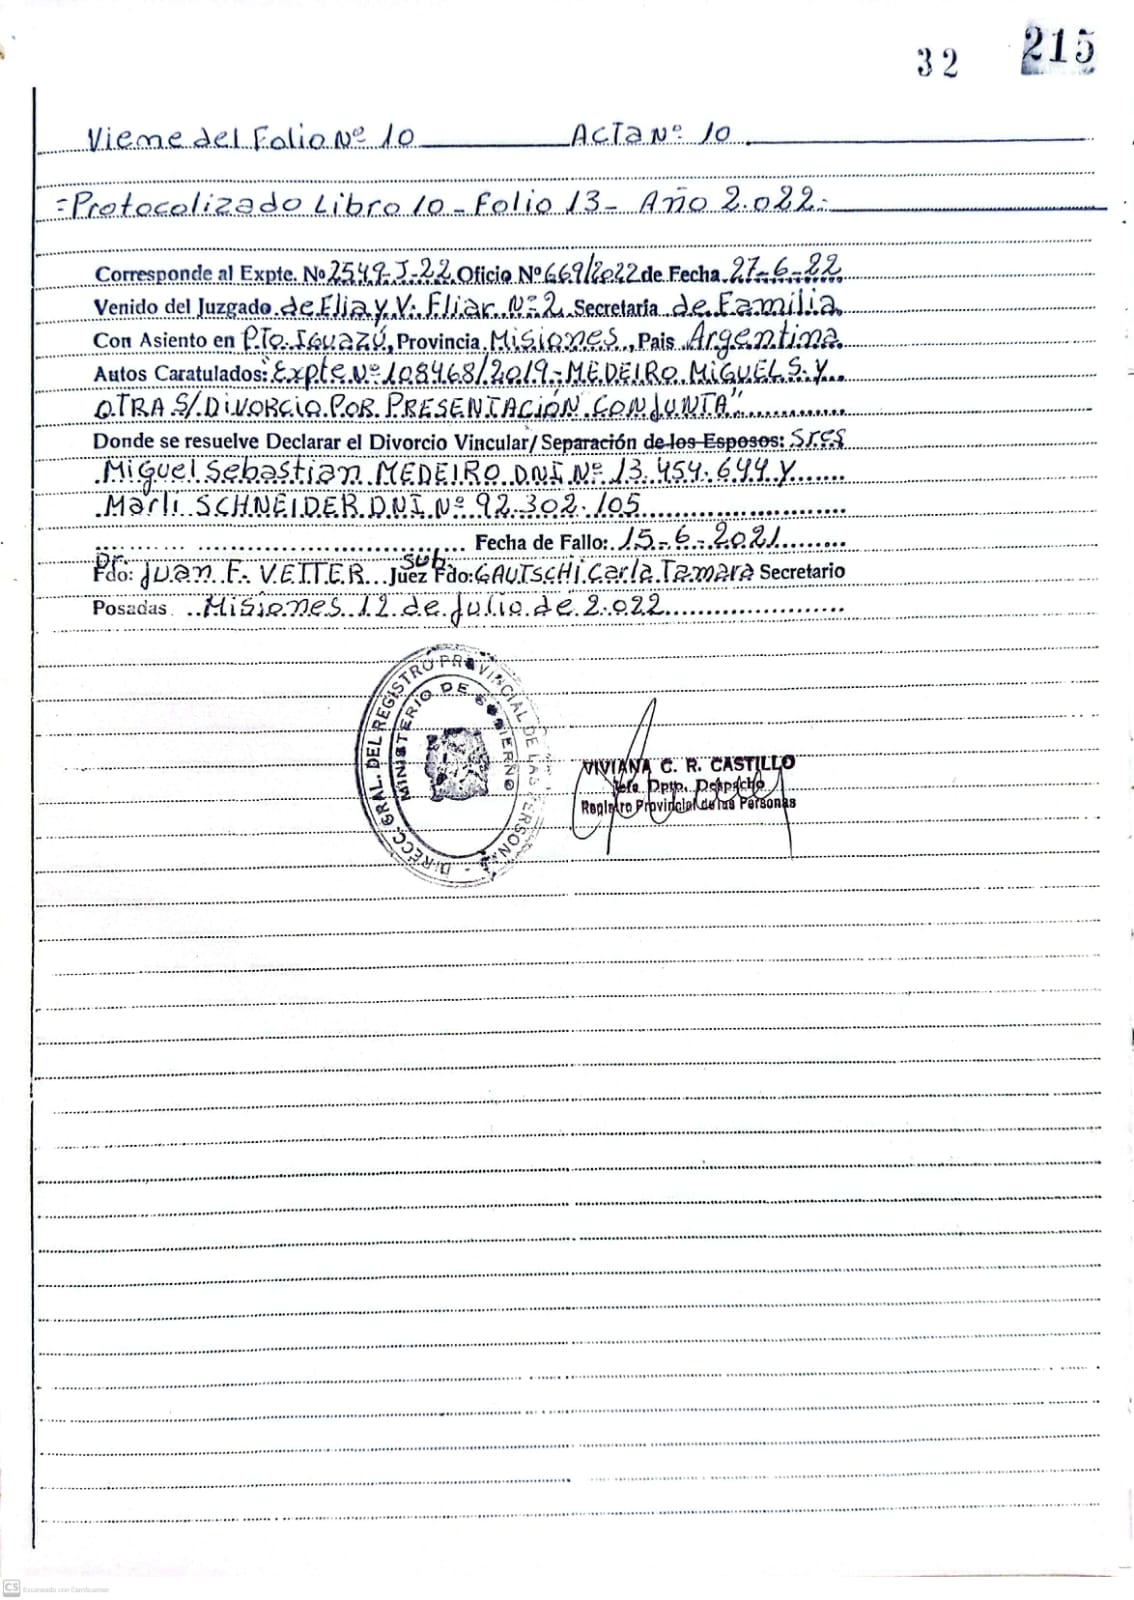 32 215
Viene del Folio Nº 10 Acta Nº 10
=Protocolizado Libro 10 - Folio 13 - Año 2.022.-
Corresponde al Expte. Nº 2549-J-22 Oficio Nº 669/2022 de Fecha 27-6-22
Venido del Juzgado de Flia y V. Fliar Nº 2 Secretaria de Familia
Con Asiento en Pto. Iguazú, Provincia Misiones, Pais Argentina
Autos Caratulados: "Expte Nº 108468/2019-MEDEIRO MIGUEL S. Y
OTRA S/DIVORCIO POR PRESENTACIÓN CONJUNTA"
Donde se resuelve Declarar el Divorcio Vincular/ Separación de los Esposos: Sres
Miguel Sebastian MEDEIRO DNI Nº 13.454.644 y
Marli SCHNEIDER DNI Nº 92.302.105
Fecha de Fallo: 15-6-2021
Fdo: Dr. Juan F. VETTER Juez Sub. Fdo: GAUTSCHI Carla Tamara Secretario
Posadas Misiones 12 de julio de 2.022
DIRECC. GRAL. DEL REGISTRO PROVINCIAL DE LAS PERSON.
MINISTERIO DE GOBIERNO
VIVIANA C. R. CASTILLO
Jefe Dpto. Despacho
Registro Provincial de las Personas
CS Escaneado con CamScanner